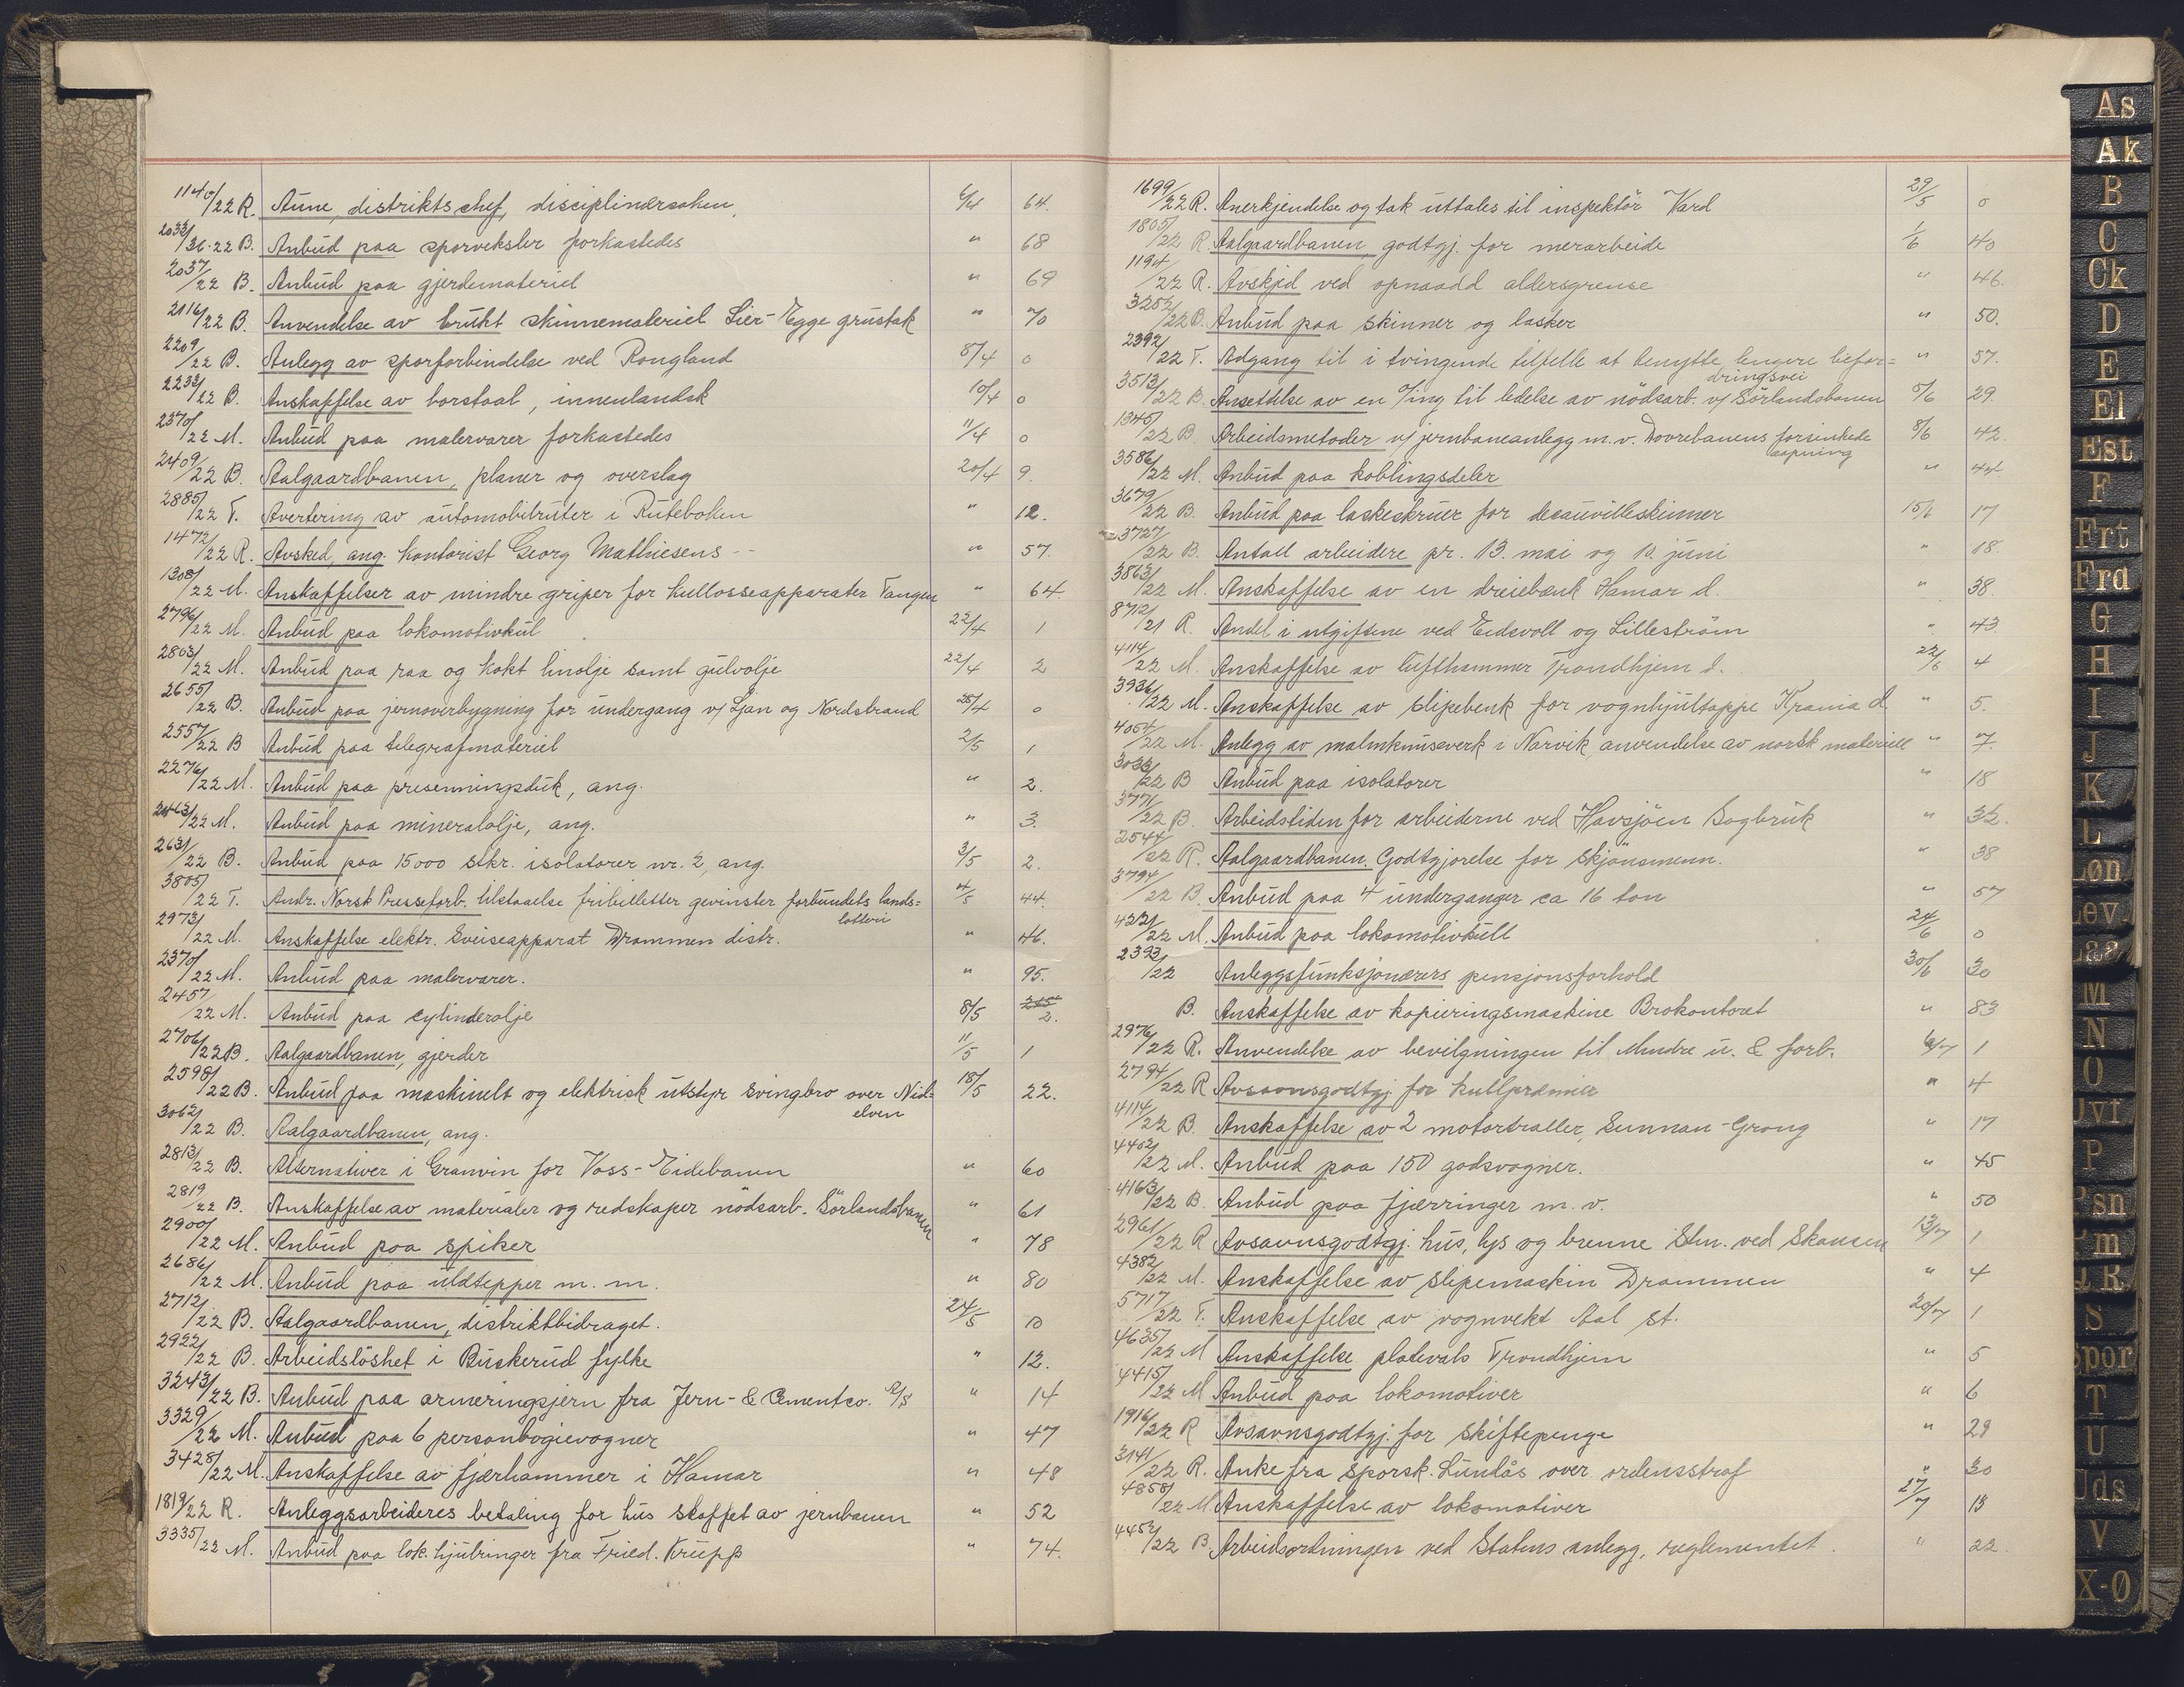 1140/22 R. Aune, distriktschef, disciplinærsaken, 6/4 64.
2033/36-22 B. Anbud paa sporveksler forkastedes " 68
2037/22 B. Anbud paa gjerdemateriel " 69
2116/22 B. Anvendelse av brukt skinnemateriel Lier-Egge grustak " 70
2209/22 B. Anlegg av sporforbindelse ved Rongland 8/4 0
2233/22 B. Anskaffelse av borstaal, innenlandsk 10/4 0
2370/22 M. Anbud paa malervarer forkastedes 11/4 0
2409/22 B. Aalgaardbanen, planer og overslag 20/4 9.
2885/22 T. Avertering av automobilruter i Ruteboken " 12.
1472/22 R. Avsked, ang. kontorist Georg Mathiesens -- " 57.
1308/22 M. Anskaffelser av mindre griper for kullosseapparater Tangen " 64.
2796/22 M. Anbud paa lokomotivkul 22/4 1
2803/22 M. Anbud paa raa og kokt linolje samt gulvolje 22/4 2
2655/22 B. Anbud paa jernoverbygning for undergang v/ Ljan og Nordstrand 25/4 0
2557/22 B Anbud paa telegrafmateriel 2/5 1
2276/22 M. Anbud paa presenningsduk, ang. " 2.
2463/22 M. Anbud paa mineralolje, ang. " 3.
2631/22 B. Anbud paa 15000 stkr. isolatorer nr. 2, ang. 3/5 2.
3805/22 T. Andr. Norsk Presseforb. tilstaaelse fribilletter gevinster forbundets lands= 4/5 44.
lotteri
2973/22 M. Anskaffelse elektr. sveiseapparat Drammen distr. " 46.
2370/22 M. Anbud paa malervarer. " 95.
2457/22 M. Anbud paa cylinderolje 8/5 2.
2706/22 B. Aalgaardbanen, gjerder 11/5 1
2598/22 B. Anbud paa maskinelt og elektrisk utstyr svingbro over Nid= 18/5 22.
elven
3062/22 B. Aalgaardbanen, ang.
2813/22 B. Alternativer i Granvin for Voss-Eidebanen " 60
2819/22 B. Anskaffelse av materialer og redskaper nödsarb. Sörlandsbanen " 61
2900/22 M. Anbud paa spiker " 78
2686/22 M. Anbud paa uldtepper m. m. " 80
2712/22 B. Aalgaardbanen, distriktbidraget. 24/5 10
2922/22 B. Arbeidslöshet i Buskerud fylke " 12.
3243/22 B. Anbud paa armeringsjern fra Jern- & Cementco. A/S " 14
3329/22 M. Anbud paa 6 personbogievogner " 47
3428/22 M. Anskaffelse av fjærhammer i Hamar " 48
1819/22 R. Anleggsarbeideres betaling for hus skaffet av jernbanen " 52
3335/22 M. Anbud paa lok. hjulringer fra Fried. Krupp " 74.
1699/22 R. Anerkjendelse og tak uttales til inspektör Vard 29/5 0
1805/22 R Aalgaardbanen, godtgj. for merarbeide 1/6 40
1194/22 R. Avskjed ved opnaadd aldersgrense " 46.
3252/22 B. Anbud paa skinner og lasker " 50.
2392/22 T. Adgang til i tvingende tilfelle at benytte lengere befor= " 57.
dringsvei
3513/22 B. Ansettelse av en /ing til ledelse av nödsarb. v/ Sörlandsbanen 5/6 29
1345/22 B. Arbeidsmetoder v/ jernbaneanlegg m. v. Dovrebanens forsinkede 8/6 42.
aapning
3586/22 M. Anbud paa koblingsdeler " 44
3679/22 B. Anbud paa laskeskruer for decauvilleskinner 15/6 17
3727/22 B. Antall arbeidere pr. 13. mai og 10. juni " 18.
3863/22 M. Anskaffelse av en dreiebenk Hamar d. " 38.
872/21 R. Andel i utgiftene ved Eidsvoll og Lilleström " 43
4114/22 M. Anskaffelse av lufthammer Trondhjem d. 22/6 4
3936/22 M. Anskaffelse av slipebenk for vognhjultappe Krania d. " 5.
4054/22 M. Anlegg av malmknuseverk i Narvik anvendelse av norsk materiell " 7.
3033/22 B Anbud paa isolatorer " 18
3771/22 B. Arbeidstiden for arbeiderne ved Havsjöen Sagbruk " 32.
2544/22 R. Aalgaardbanen. Godtgjorelse for skjönsmenn. " 38
3794/22 B. Anbud paa 4 underganger ca 16 ton " 57
4221/22 M. Anbud paa lokomotivkull 24/6 0
2393/22 Anleggsfunksjonærers pensjonsforhold 30/6 30
B. Anskaffelse av kopieringsmaskine Brokontoret " 83
2976/22 R. Anvendelse av bevilgningen til Mindre u. & forb. 6/7 1
2794/22 R Avsavnsgodtgj for kullpræmier " 4
4114/22 B. Anskaffelse av 2 motortraller, Sunnan-Grong " 17
4402/22 M. Anbud paa 150 godsvogner. " 45
4163/22 B. Anbud paa fjærringer m. v. " 50
2961/22 R Avsavnsgodtgj. hus, lys og brenne Stm. ved Skansen 13/7 1
4382/22 M. Anskaffelse av slipemaskin Drammen " 4
5717/22 T. Anskaffelse av vognvekt Aal st. 20/7 1
4635/22 M Anskaffelse platevals Trondhjem " 5
4415/22 M Anbud paa lokomotiver " 6
1916/22 R Avsavnsgodtgj. for skiftepenge " 29
3141/22 R. Anke fra sporsk. Lundås over ordensstraf " 30
4858/22 M Anskaffelse av lokomotiver 27/7 13
4452/22 B. Arbeidsordningen ved Statens anlegg, reglementet. " 22.
As
Ak
B
C
Ck
D
E
El
Est
F
Frt
Fra
G
H
I
J
K
L
Løn
Lev.
M
N
O
P
S
Spor
T
U
Uds
V
X-Ø